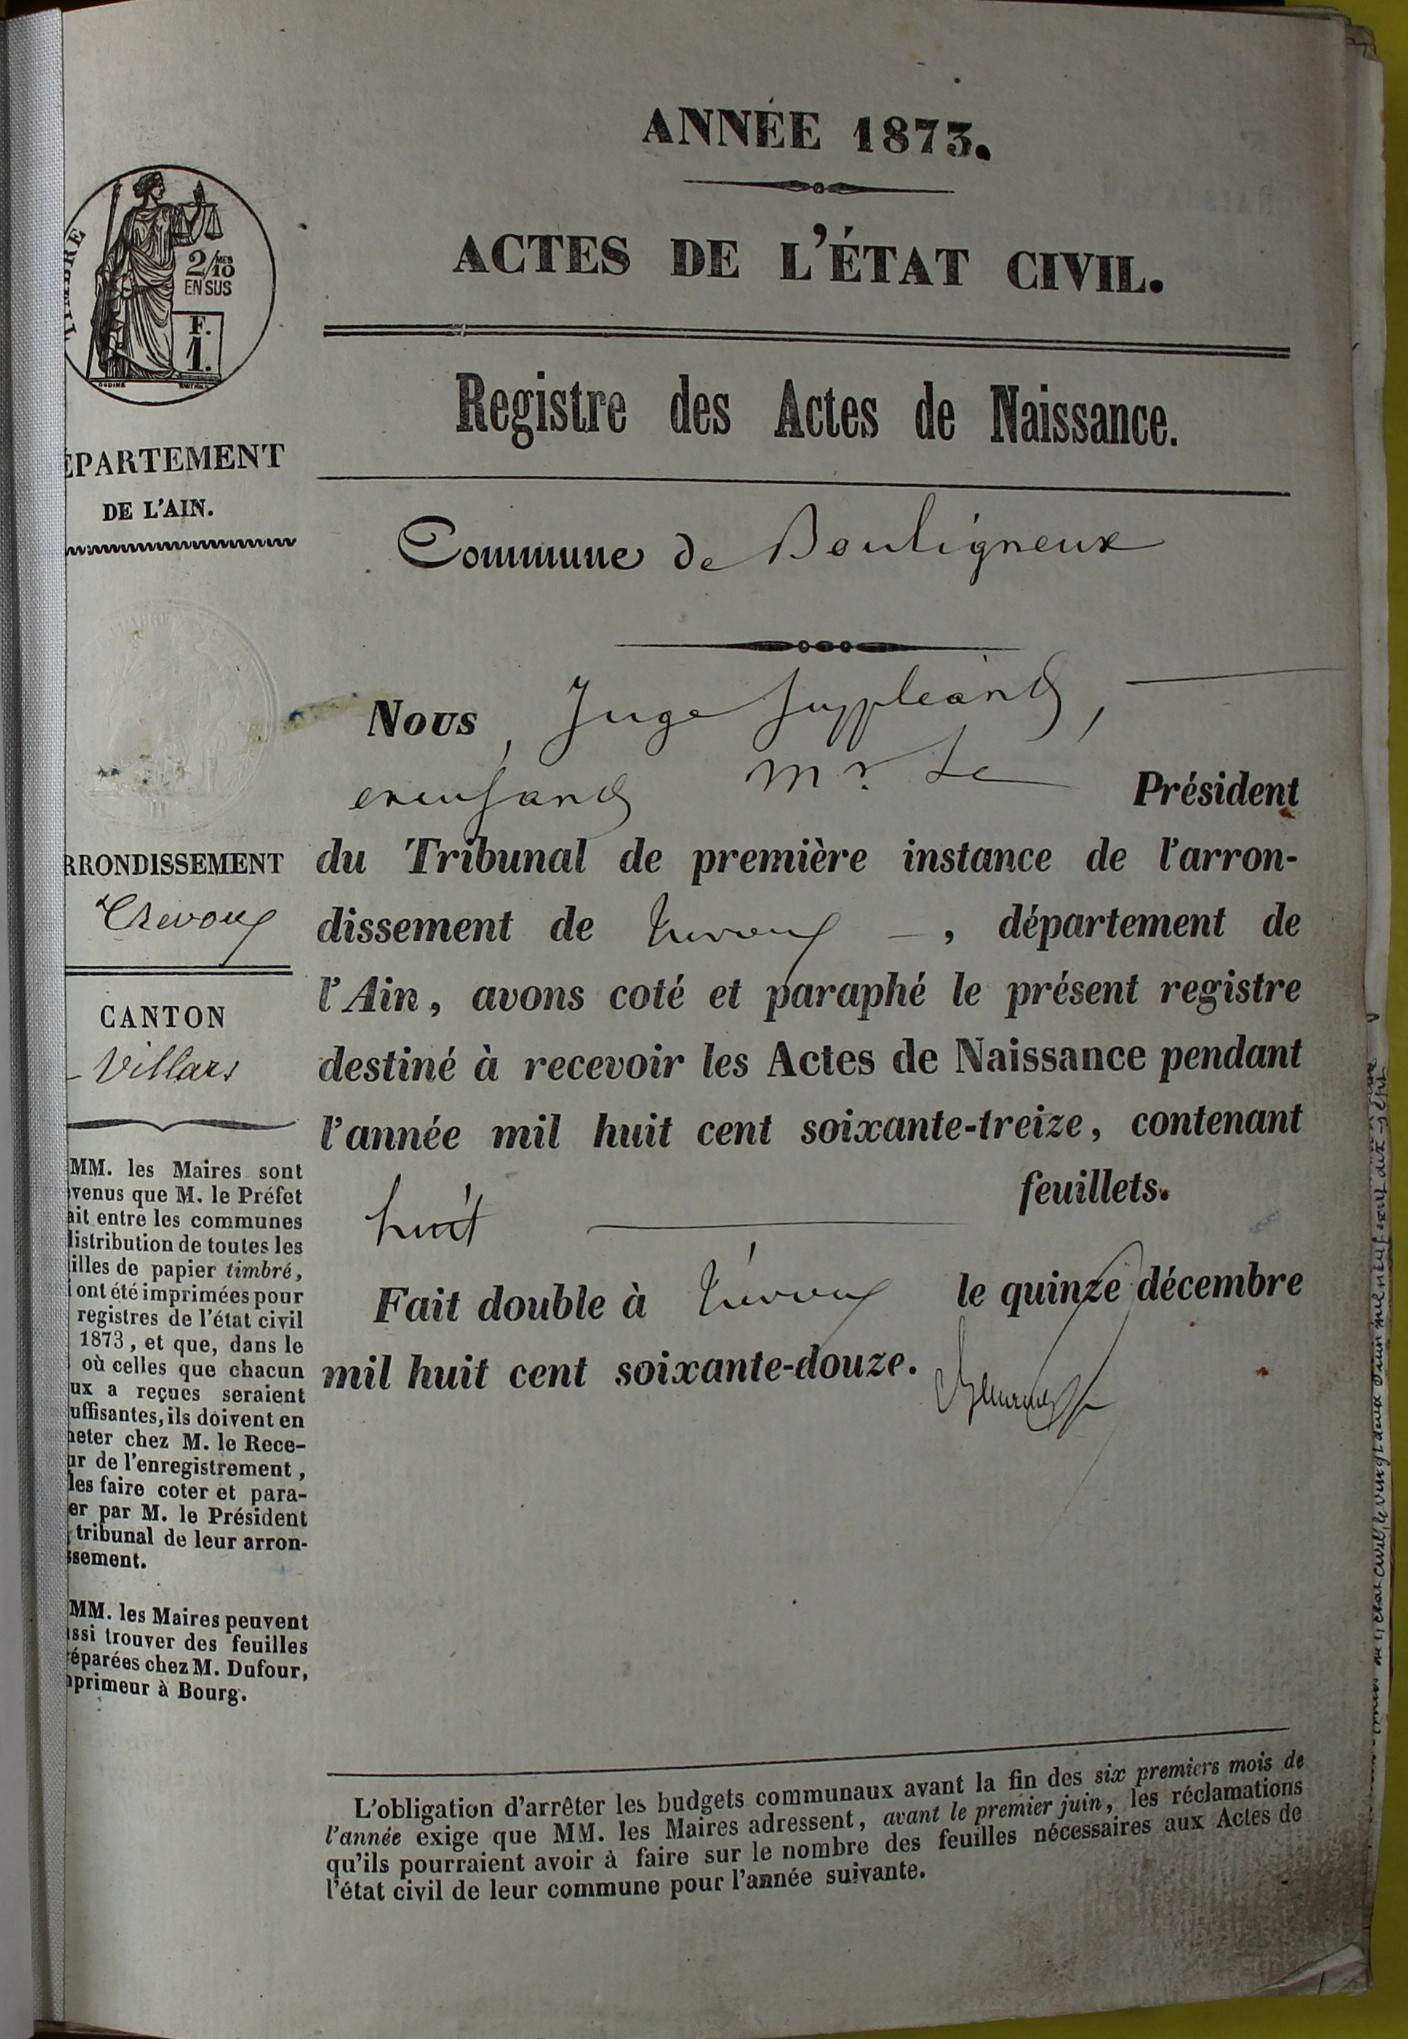 ANNÉE 1873.
ACTES DE L'ÉTAT CIVIL.
Registre des Actes de Naissance.
Commune de Bouligneux
Nous, Juge suppléant,
excusant Mr. Le Président
du Tribunal de première instance de l'arron-
dissement de Trévoux —, département de
l'Ain, avons coté et paraphé le présent registre
destiné à recevoir les Actes de Naissance pendant
l'année mil huit cent soixante-treize, contenant
huit feuillets.
Fait double à Trévoux le quinze décembre
mil huit cent soixante-douze.
L'obligation d'arrêter les budgets communaux avant la fin des six premiers mois de
l'année exige que MM. les Maires adressent, avant le premier juin, les réclamations
qu'ils pourraient avoir à faire sur le nombre des feuilles nécessaires aux Actes de
l'état civil de leur commune pour l'année suivante.
TIMBRE
2/10 MES
EN SUS
F.
1.
ÉPARTEMENT
DE L'AIN.
RRONDISSEMENT
Trevoux
CANTON
Villars
MM. les Maires sont
venus que M. le Préfet
ait entre les communes
distribution de toutes les
illes de papier timbré,
i ont été imprimées pour
registres de l'état civil
1873, et que, dans le
où celles que chacun
ux a reçues seraient
uffisantes, ils doivent en
heter chez M. le Rece-
ur de l'enregistrement,
les faire coter et para-
er par M. le Président
tribunal de leur arron-
ssement.
MM. les Maires peuvent
ssi trouver des feuilles
réparées chez M. Dufour,
mprimeur à Bourg.